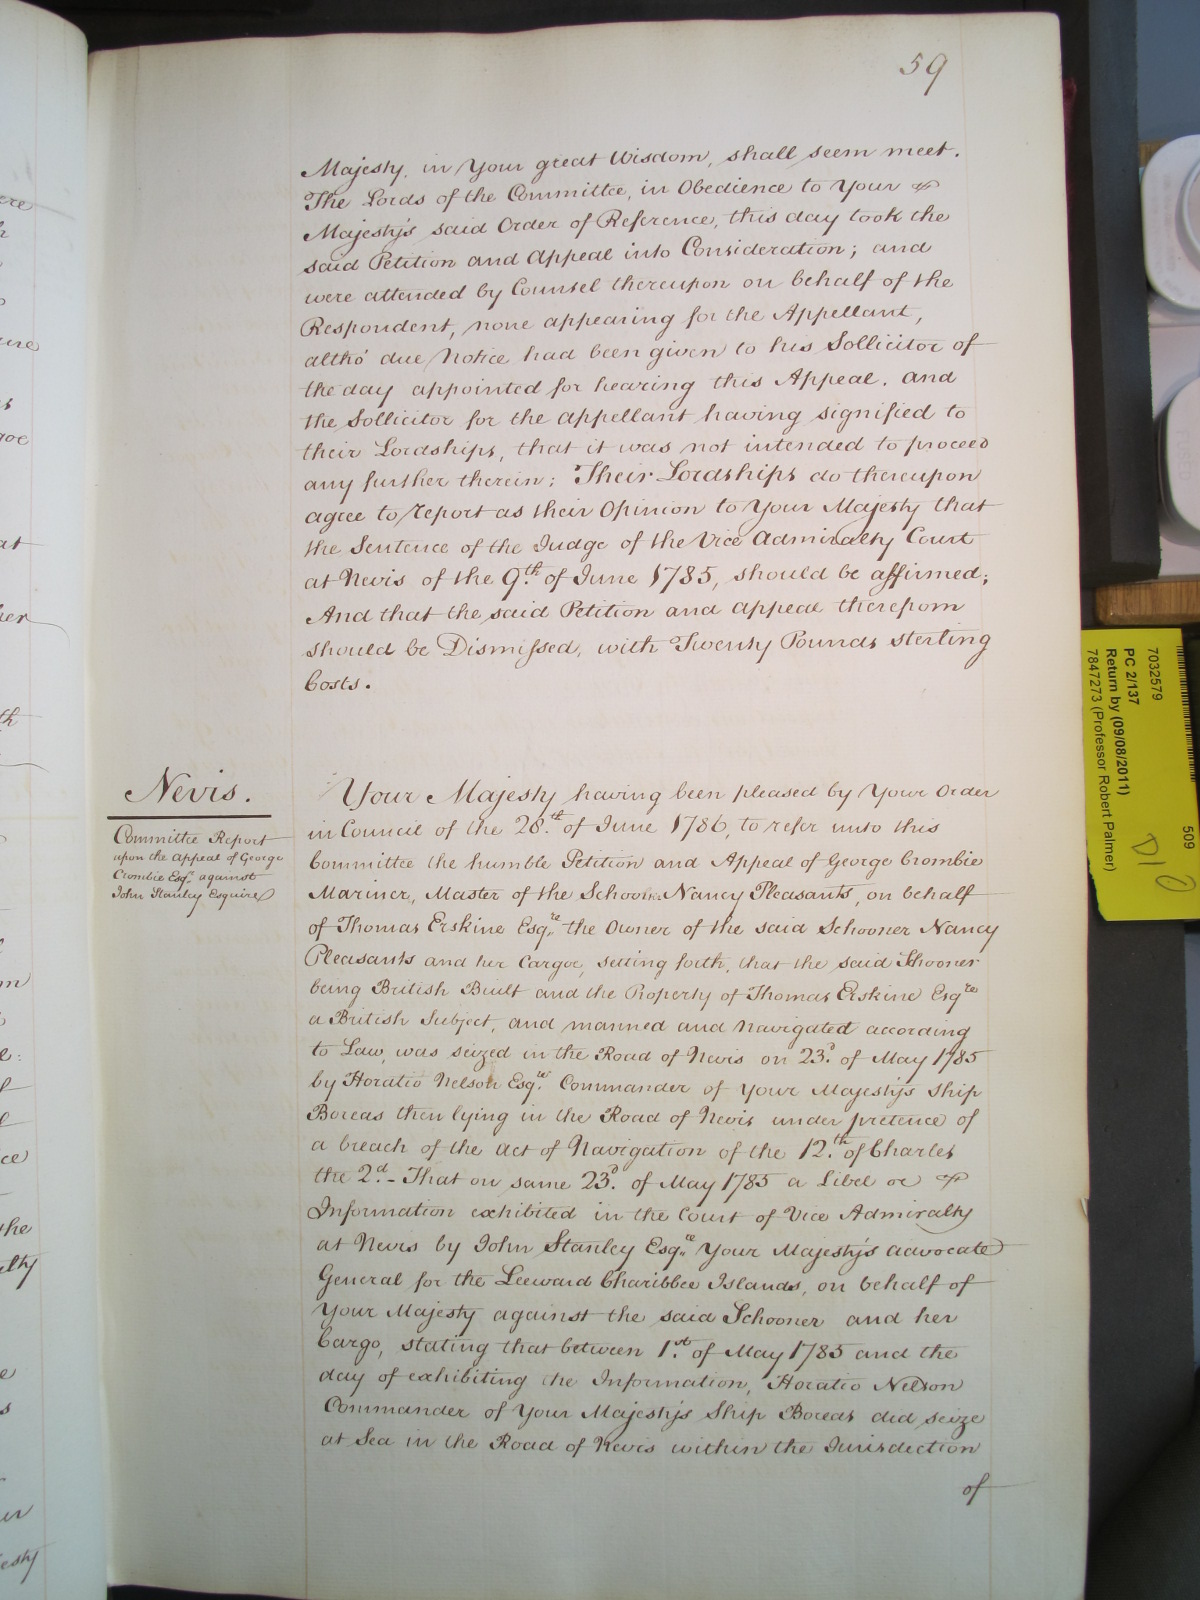 59
Majesty, in Your great Wisdom, shall seem meet.
The Lords of the Committee, in Obedience to Your
Majesty's said Order of Reference, this day took the
said Petition and Appeal into Consideration; and
were attended by Counsel thereupon on behalf of the
Respondent, none appearing for the Appellant,
altho' due Notice had been given to his Sollicitor of
the day appointed for hearing this Appeal. And
the Sollicitor for the Appellant having signified to
their Lordships, that it was not intended to proceed
any further therein; Their Lordships do thereupon
agree to report as their Opinion to Your Majesty that
the Sentence of the Judge of the Vice Admiralty Court
at Nevis of the 9.th of June 1785, should be affirmed;
And that the said Petition and Appeal therefrom
should be Dismissed, with Twenty Pounds sterling
Costs.
Nevis.
Committee Report
upon the Appeal of George
Crombie Esqr. against
John Stanley Esquire
Your Majesty having been pleased by Your Order
in Council of the 28.th of June 1786, to refer unto this
Committee the humble Petition and Appeal of George Crombie
Mariner, Master of the Schooner Nancy Pleasants, on behalf
of Thomas Erskine Esqre. the Owner of the said Schooner Nancy
Pleasants and her Cargoe, setting forth, that the said Schooner
being British Built and the Property of Thomas Erskine Esqre
a British Subject, and manned and Navigated according
to Law, was seized in the Road of Nevis on 23d. of May 1785
by Horatio Nelson Esqre. Commander of Your Majesty's Ship
Boreas then lying in the Road of Nevis under pretence of
a breach of the Act of Navigation of the 12.th of Charles
the 2.d - That on same 23d. of May 1785 a Libel or
Information exhibited in the Court of Vice Admiralty
at Nevis by John Stanley Esqre. Your Majesty's Advocate
General for the Leeward Charibbee Islands, on behalf of
Your Majesty against the said Schooner and her
Cargo, stating that between 1.st of May 1785 and the
day of exhibiting the Information, Horatio Nelson
Commander of Your Majesty's Ship Boreas did seize
at Sea in the Road of Nevis within the Jurisdiction
of
509
7032579
PC 2/137
Return by (09/08/2011)
7847273 (Professor Robert Palmer)